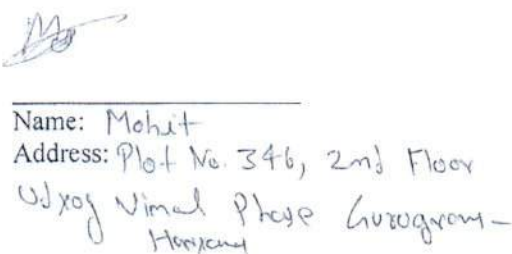 Name: Mohit
Address: Plot No. 346, 2nd Floor
Udyog Phase Gurugram-
Haryana